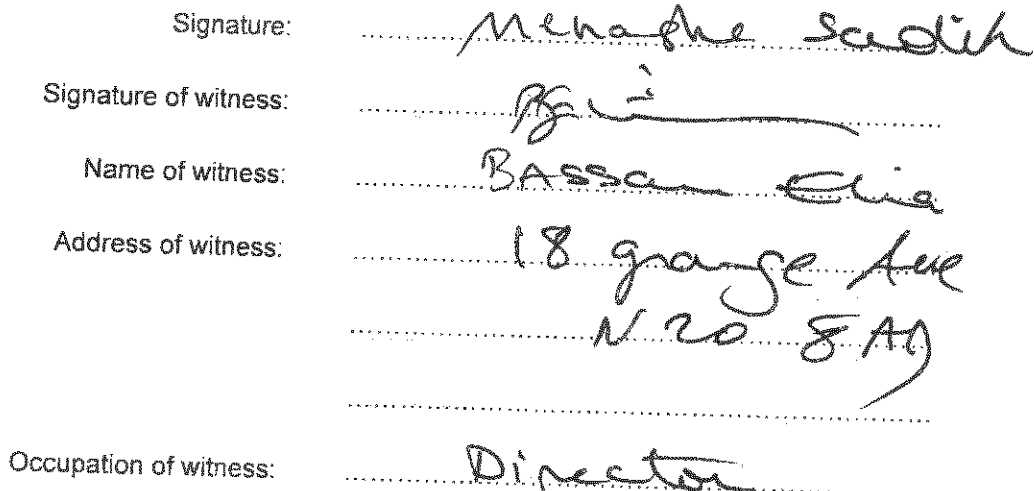 Signature: Menashe Sadik
Signature of witness:
Name of witness: BASSam Elia
Address of witness: 18 grange Ave
N20 8AD
Occupation of witness: Director